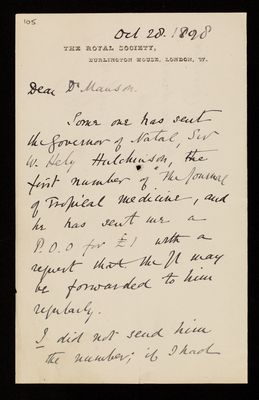 105
Oct 28. 1898
THE ROYAL SOCIETY,
BURLINGTON HOUSE, LONDON, W.
Dear Dr Manson.
Some one has sent
the Governor of Natal, Sir
W. Hely Hutchinson, the
first number of "The Journal
of Tropical Medicine", and
he has sent me a
P.O.O for £1 with a
request that the Jl may
be forwarded to him
regularly.
I did not send him
the number; if I had